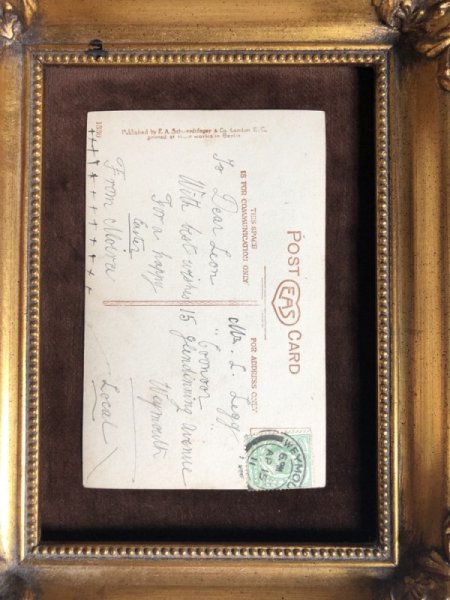 POST EAS CARD
THIS SPACE
IS FOR COMMUNICATION ONLY
FOR ADDRESS ONLY
To Dear Leon
With best wishes
For a happy
Easter
From Moira
+ + + + + + + + + + + +
Mr. L. Legg
"Coonoor"
15 Glendinning Avenue
Weymouth
Local
WEYMO
AP 15
Published by E. A. Schwerdtfeger & Co. London E. C.
printed at their works in Berlin